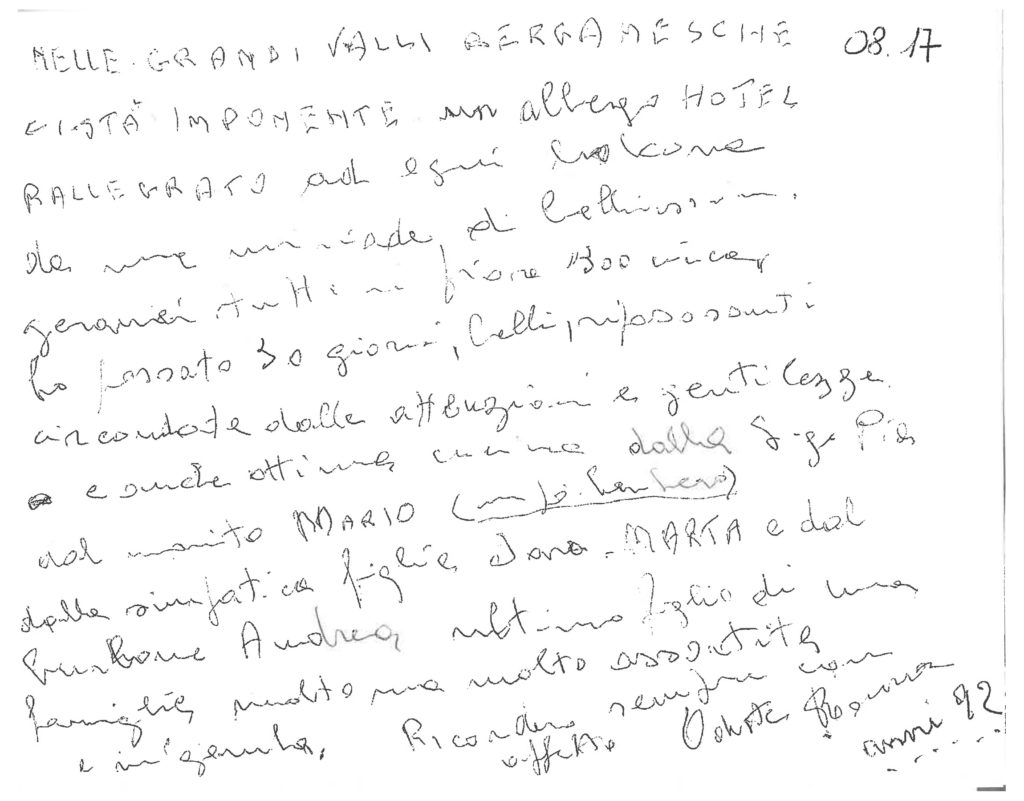 NELLE GRANDI VALLI BERGAMESCHE 08.17
IMPONENTE un albergo HOTEL
RALLEGRATO ad ogni balcone
da una miriade, di bellissimi.
gerani tutti in fiore 1300
ho passato 30 giorni, belli, riposanti
circondata dalle attenzioni e gentilezze
e anche ottima cucina dalla S.ga Pia
dal marito MARIO
dalla simpatica figlia Sara. MARTA e dal
burlone Andrea ultimo figlio di una
famiglia molto ma molto assortita
e Ricorderò sempre con
affetto Romma
anni 92